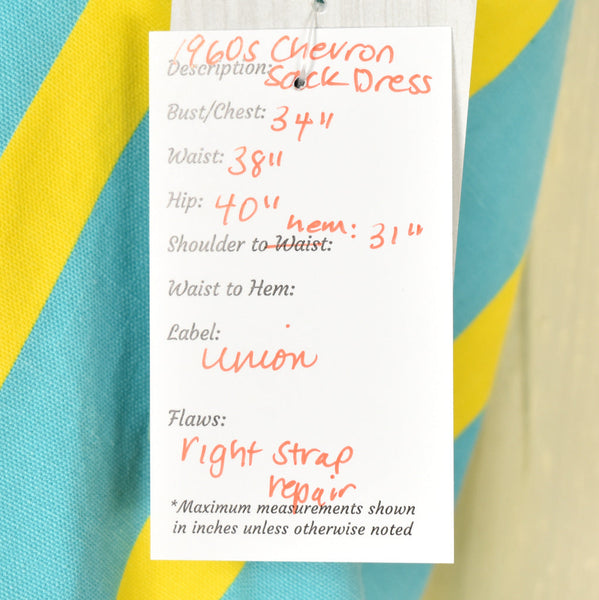 1960s Chevron
Description: Sack Dress
Bust/Chest: 34"
Waist: 38"
Hip: 40"
hem: 31"
Shoulder to Waist:
Waist to Hem:
Label:
Union
Flaws:
right strap
repair
*Maximum measurements shown
in inches unless otherwise noted